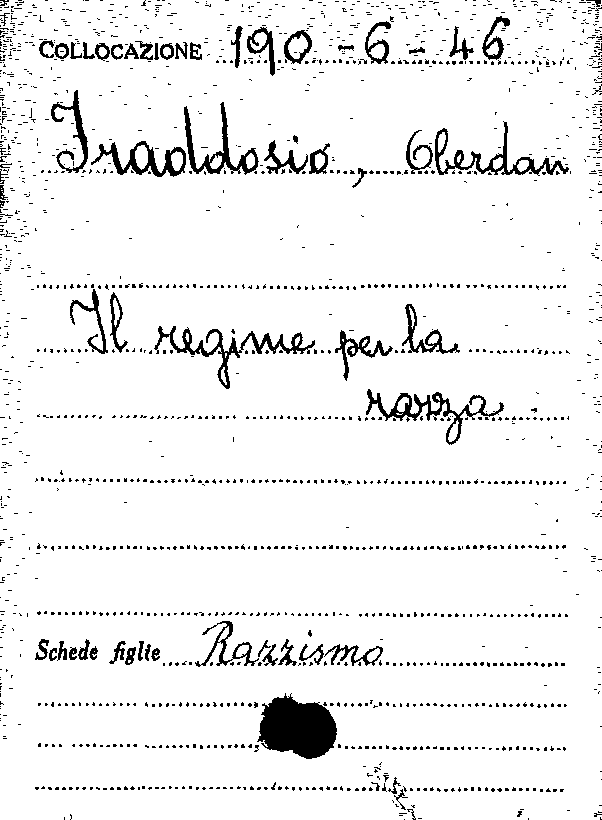 COLLOCAZIONE 190-6-46
Fraddosio, Oberdan
Il regime per la
razza.
Schede figlie Razzismo